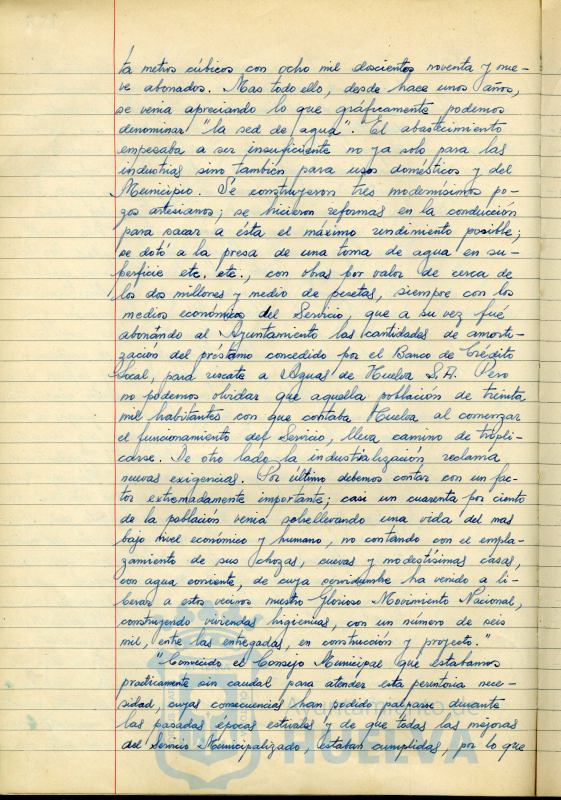 ta metros cúbicos con ocho mil doscientos noventa y nue-
ve abonados. Mas todo ello, desde hace unos años,
se venia apreciando lo que gráficamente podemos
denominar "la sed de agua". El abastecimiento
empezaba a ser insuficiente no ya solo para las
industrias sino tambien para usos domésticos y del
Municipio. Se construyeron tres modernísimos po-
zos artesianos; se hicieron reformas en la conducción
para sacar a ésta el máximo rendimiento posible;
se dotó a la presa de una toma de agua en su-
perficie etc. etc., con obras por valor de cerca de
los dos millones y medio de pesetas, siempre con los
medios económicos del Servicio, que a su vez fué
abonando al Ayuntamiento las cantidades de amorti-
zación del préstamo concedido por el Banco de Crédito
Local, para rescate a Aguas de Huelva S.A. Pero
no podemos olvidar que aquella población de treinta
mil habitantes con que contaba Huelva al comenzar
el funcionamiento del Servicio, lleva camino de tripli-
carse. De otro lado la industrialización reclama
nuevas exigencias. Por último debemos contar con un fac-
tor extremadamente importante; casi un cuarenta por ciento
de la población venia sobrellevando una vida del mas
bajo nivel económico y humano, no contando con el empla-
zamiento de sus chozas, cuevas y modestísimas casas,
con agua corriente, de cuya servidumbre ha venido a li-
berar a estos vecinos nuestro Glorioso Movimiento Nacional,
construyendo viviendas higienicas, con un número de seis
mil, entre las entregadas, en construcción y proyecto."
"Convencido el Consejo Municipal que estabamos
practicamente sin caudal para atender esta perentoria nece-
sidad, cuyas consecuencias han podido palparse durante
las pasadas épocas estivales y de que todas las mejoras
del Servicio Municipalizado, estaban cumplidas, por lo que
Ayuntamiento de
HUELVA